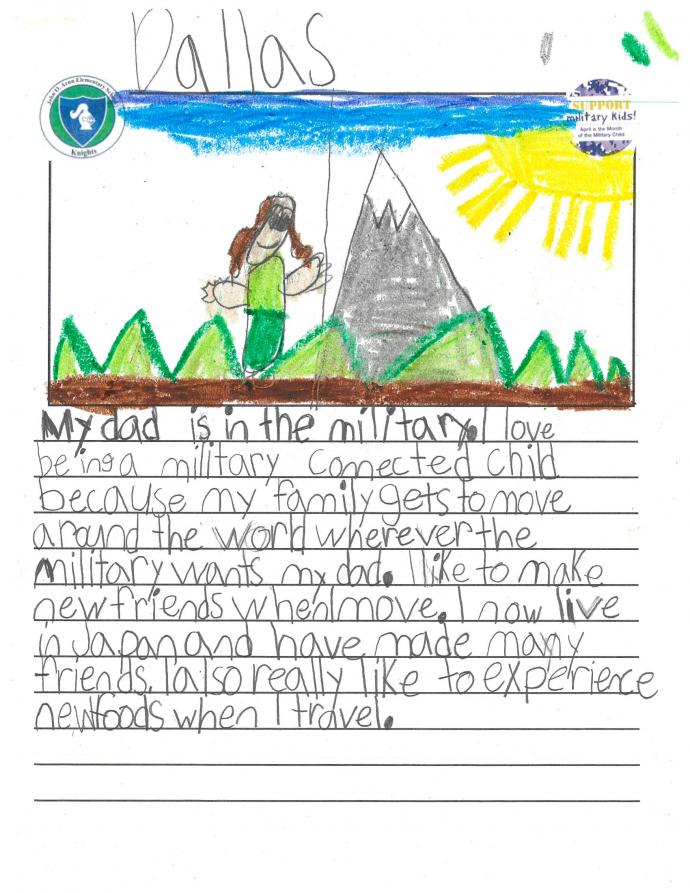 Dallas
John O. Arnn Elementary School
Knights
SUPPORT
military Kids!
April is the Month
of the Military Child
My dad is in the military. I love
being a military connected child
because my family gets to move
around the world wherever the
military wants my dad. I like to make
new friends when I move. I now live
in Japan and have made many
friends. I also really like to experience
new foods when I travel.